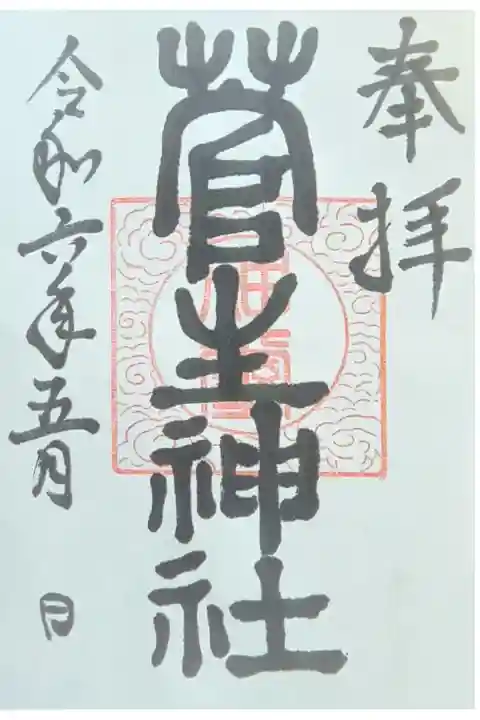 奉拝
菅生神社
令和六年五月 日